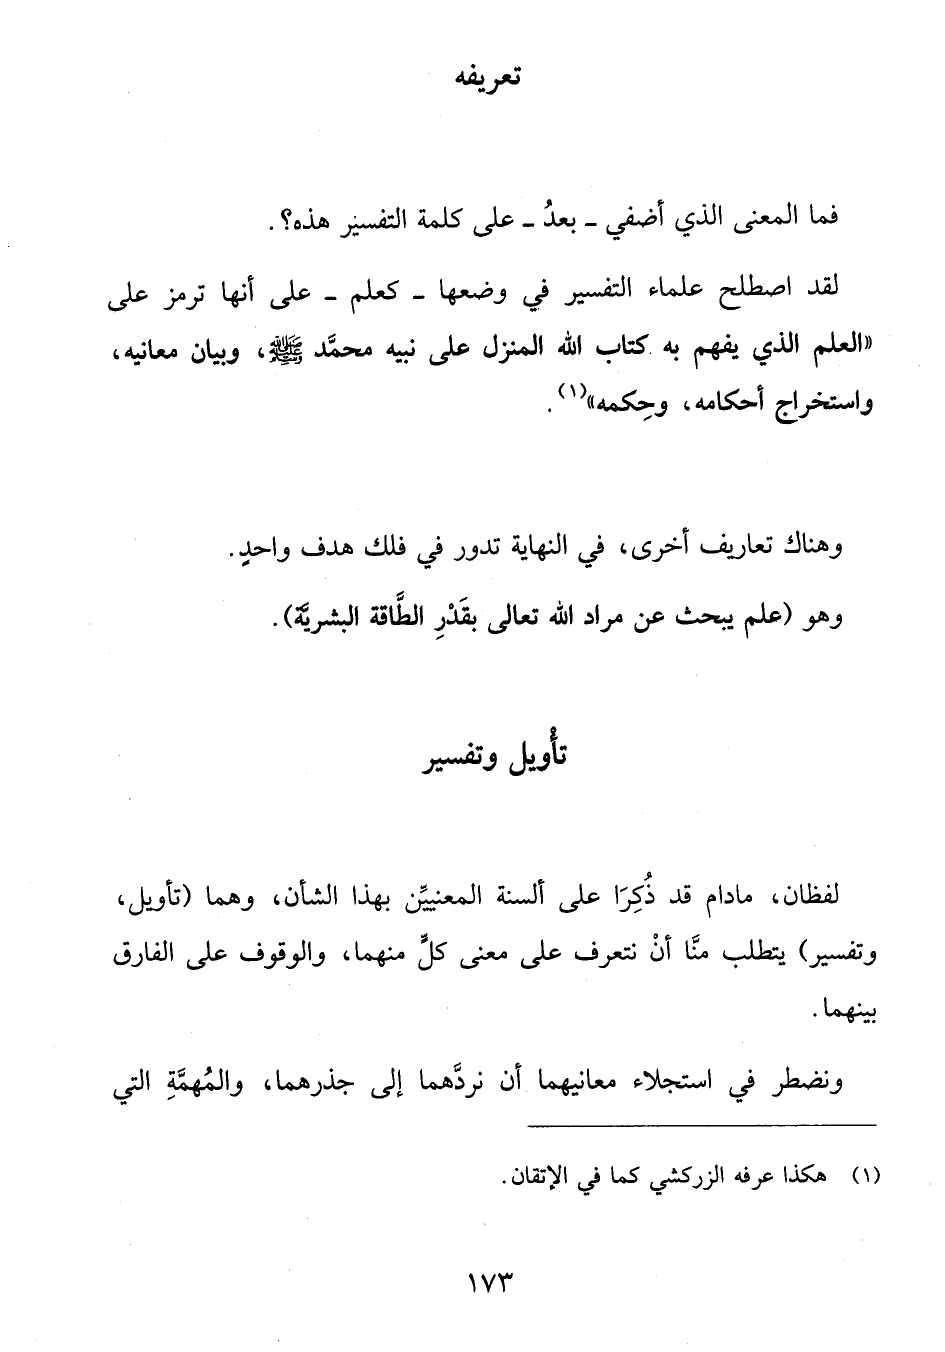 تعريفه
فما المعنى الذي أضفي ـ بعدُ ـ على كلمة التفسير هذه؟.
لقد اصطلح علماء التفسير في وضعها ـ كعلم ـ على أنها ترمز على
«العلم الذي يفهم به كتاب الله المنزل على نبيه محمَّد ﷺ، وبيان معانيه،
واستخراج أحكامه، وحِكمه»(١).
وهناك تعاريف أخرى، في النهاية تدور في فلك هدف واحدٍ.
وهو (علم يبحث عن مراد الله تعالى بقَدْرِ الطَّاقة البشريَّة).
تأْويل وتفسير
لفظان، مادام قد ذُكِرَا على ألسنة المعنييِّن بهذا الشأن، وهما (تأويل،
وتفسير) يتطلب منَّا أنْ نتعرف على معنى كلٍّ منهما، والوقوف على الفارق
بينهما.
ونضطر في استجلاء معانيهما أن نردَّهما إلى جذرهما، والمُهمَّةِ التي
(١) هكذا عرفه الزركشي كما في الإتقان.
١٧٣